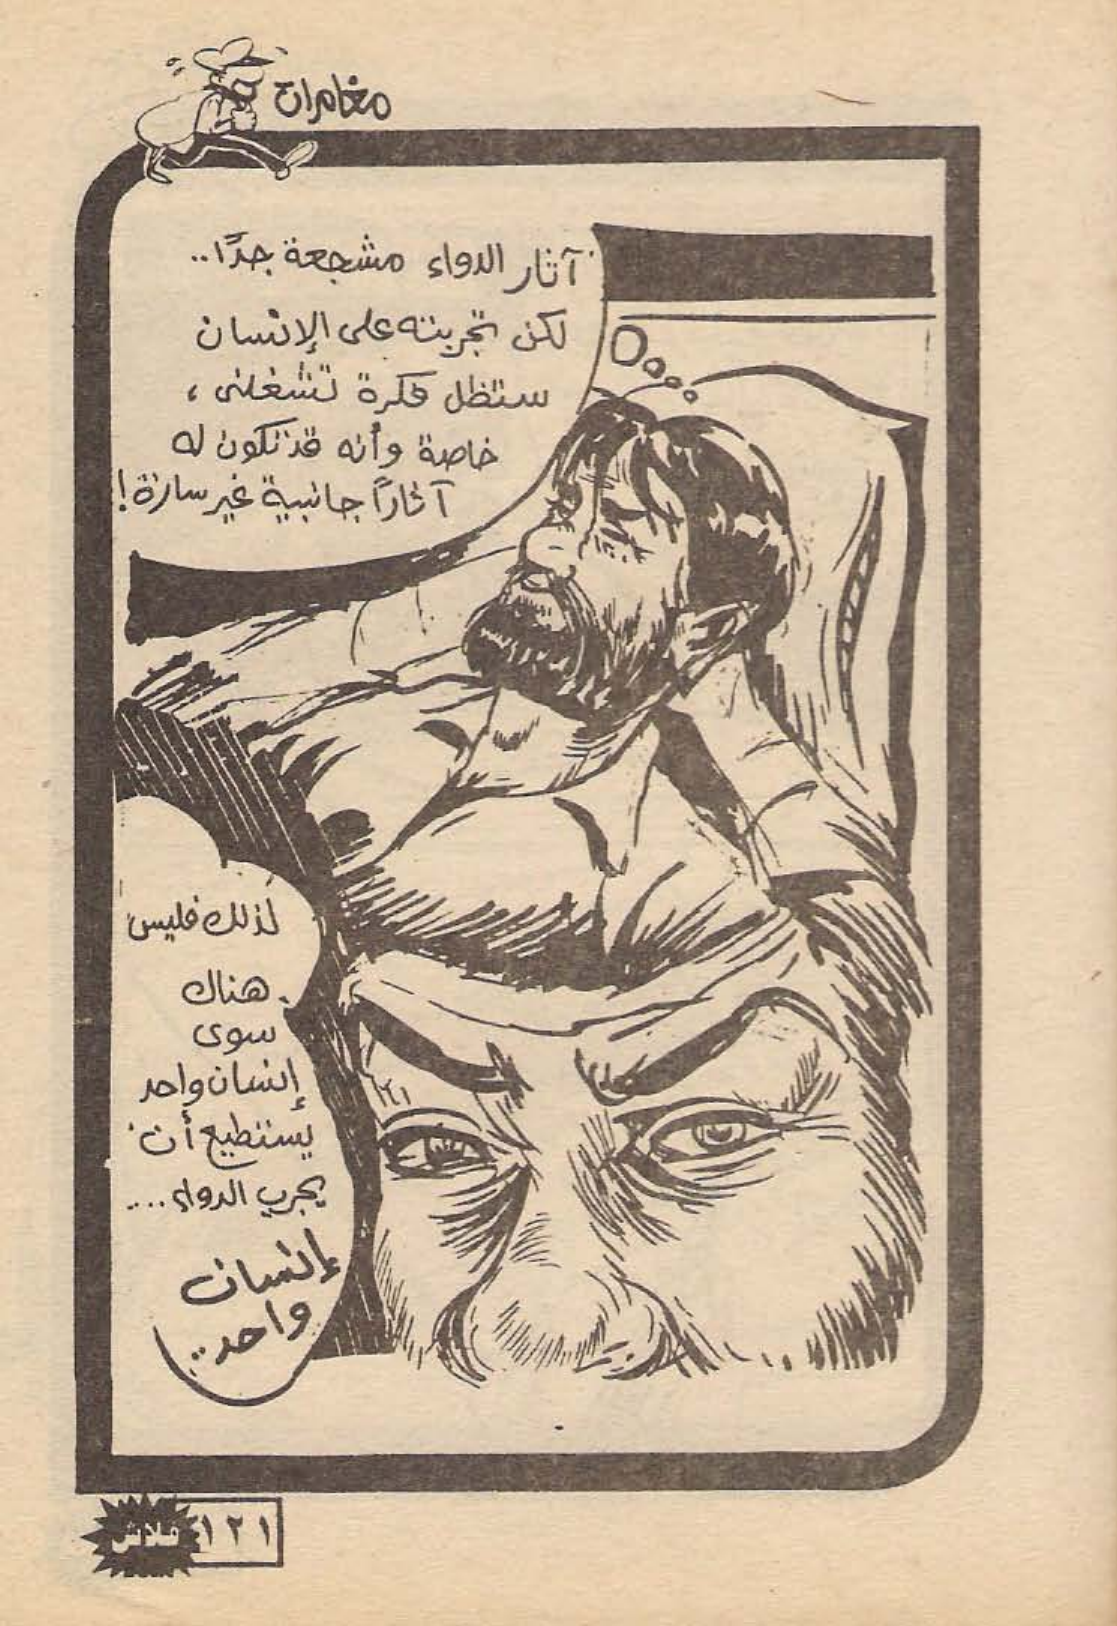 مغامرات
آثار الدواء مشجعة جدًا..
لكن تجربته على الإنسان
ستظل فكرة تشغلنى ،
خاصة وأنه قد تكون له
آثارًا جانبية غير سارة !
لذلك فليس
هناك
سوى
إنسان واحد
يستطيع أن
يجرب الدواء ...
إنسان
واحد ..
١٢١
فلاش